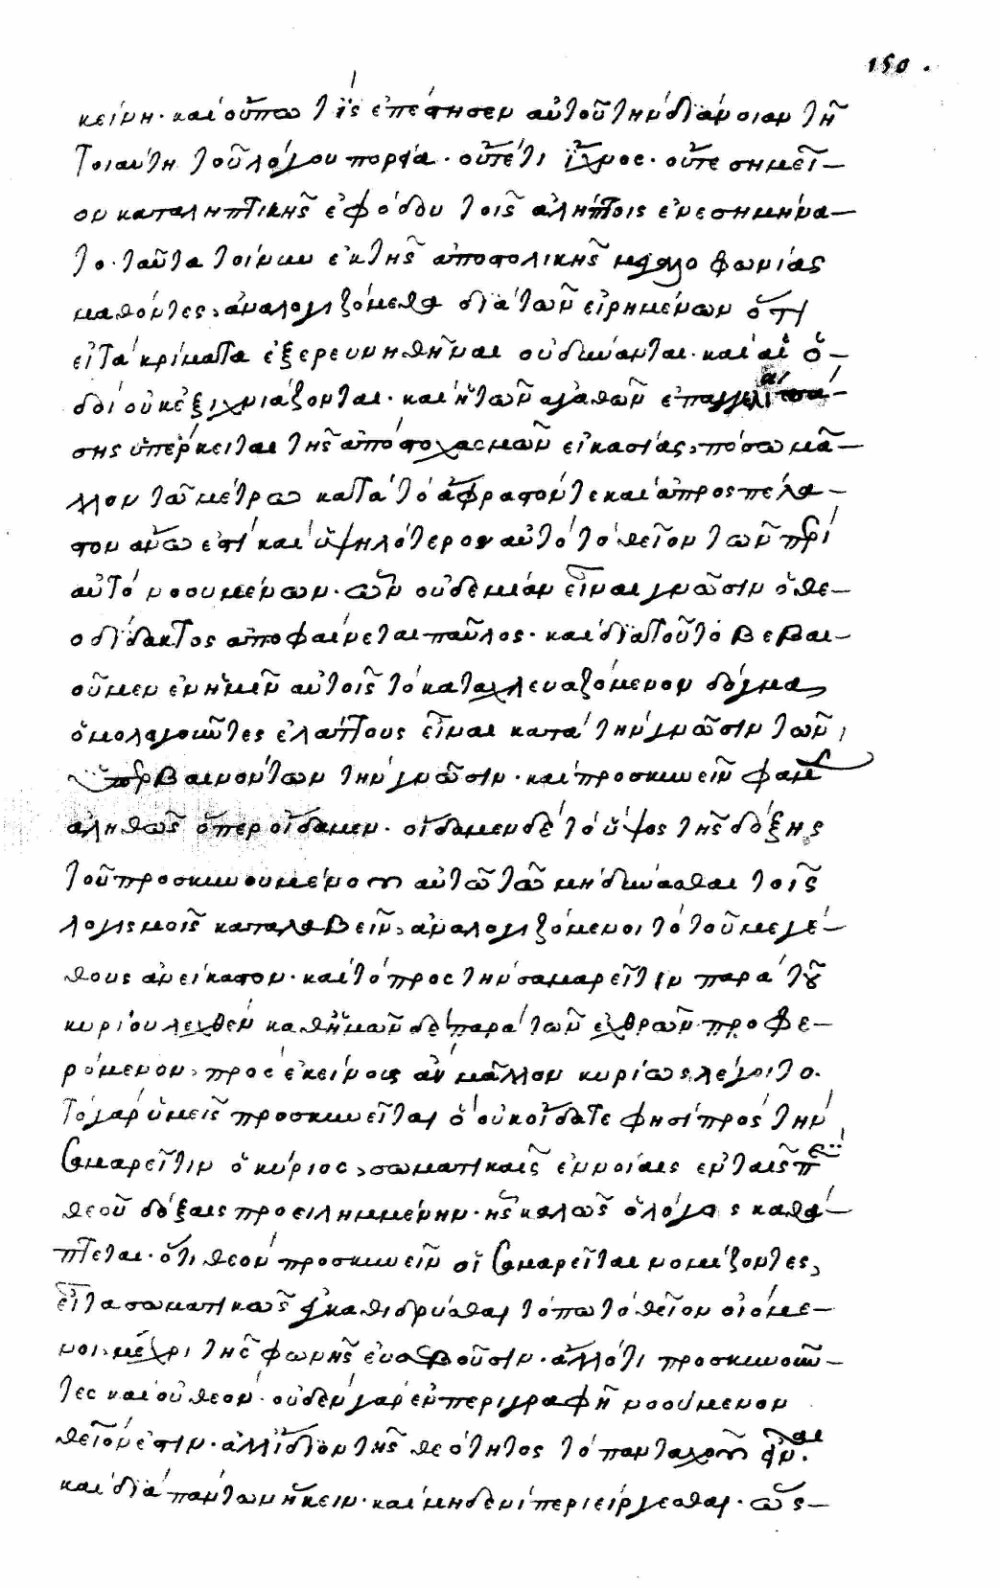 150.
κείνη· καὶ οὔπω τίς ἐπέστησεν αὐτοῦ τὴν διάνοιαν τῆ
τοιαύτη τοῦ λόγου πορεία· οὔτέ τι ἴχνος· οὔτε σημεῖ–
ον καταληπτικῆς ἐφόδου τοῖς ἀλήπτοις ἐνεσημήνα–
το· ταῦτα τοίνυν ἐκ τῆς ἀποστολικῆς μεγαλοφωνίας
μαθόντες, ἀναλογιζόμεθα διὰ τῶν εἰρημένων ὅτι
εἰ τὰ κρίματα ἐξερευνηθῆναι οὐ δύνανται· καὶ αἱ ὁ–
δοὶ οὐκ ἐξιχνιάζονται· καὶ ἡ τῶν ἀγαθῶν ἐπαγγελία
σης ὑπέρκειται τῆς ἀπὸ στοχασμῶν εἰκασίας, πόσω μᾶ–
λλον τῶ μέτρω κατὰ τὸ ἄφραστόν τε καὶ ἀπροσπέλα–
στον ἄνω ἐστὶ καὶ ὑψηλότερον αὐτὸ τὸ θεῖον τῶν περὶ
αὐτὸ νοουμένων· ὧν οὐδεμίαν εἶναι γνῶσιν ὁ θε–
οδίδακτος ἀποφαίνεται παῦλος· καὶ διὰ τοῦτο βεβαι–
οῦμεν ἐν ἡμῖν αὐτοῖς τὸ καταχλευαζόμενον δόγμα,
ὁμολογοῦντες ἐλάττους εἶναι κατὰ τὴν γνῶσιν τῶν
ὑπερβαινόντων τὴν γνῶσιν· καὶ προσκυνεῖν φαμὲν
ἀληθῶς ὅπερ οἴδαμεν· οἴδαμεν δὲ τὸ ὕψος τῆς δόξης
τοῦ προσκυνουμένου αὐτῶ τῶ μὴ δύνασθαι τοῖς
λογισμοῖς καταλαβεῖν, ἀναλογιζόμενοι τὸ τοῦ μεγέ–
θους ἀνείκαστον· καὶ τὸ πρὸς τὴν σαμαρεῖτιν παρὰ τοῦ
κυρίου λεχθὲν καθ' ἡμῶν δὲ παρὰ τῶν ἐχθρῶν προφε–
ρόμενον, πρὸς ἐκείνοις ἂν μᾶλλον κυρίως λέγοιτο.
Τὸ γὰρ ὑμεῖς προσκυνεῖται ὃ οὐκ οἴδατε φησὶ πρὸς τὴν
Σαμαρεῖτιν ὁ κύριος, σωματικαῖς ἐννοίαις ἐν ταῖς περὶ
θεοῦ δόξαις προειλημμένην· ἧς καλῶς ὁ λόγος καθά–
πτεται· ὅτι θεὸν προσκυνεῖν οἱ Σαμαρεῖται νομίζοντες,
εἶτα σωματικῶς ἐγκαθιδρύσθαι τόπω τὸ θεῖον οἰόμε–
νοι, μέχρι τῆς φωνῆς εὐσεβοῦσιν· ἄλλό τι προσκυνοῦν–
τες καὶ οὐ θεόν· οὐδὲν γὰρ ἐν περιγραφῆ νοούμενον
θεῖόν ἐστιν· ἀλλ' ἴδιον τῆς θεότητος τὸ πανταχοῦ εἶναι.
καὶ διὰ πάντων ἥκειν· καὶ μηδενὶ περιείργεσθαι· ὥς–